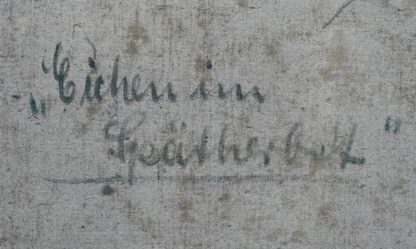 „Eichen im
Spätherbst"